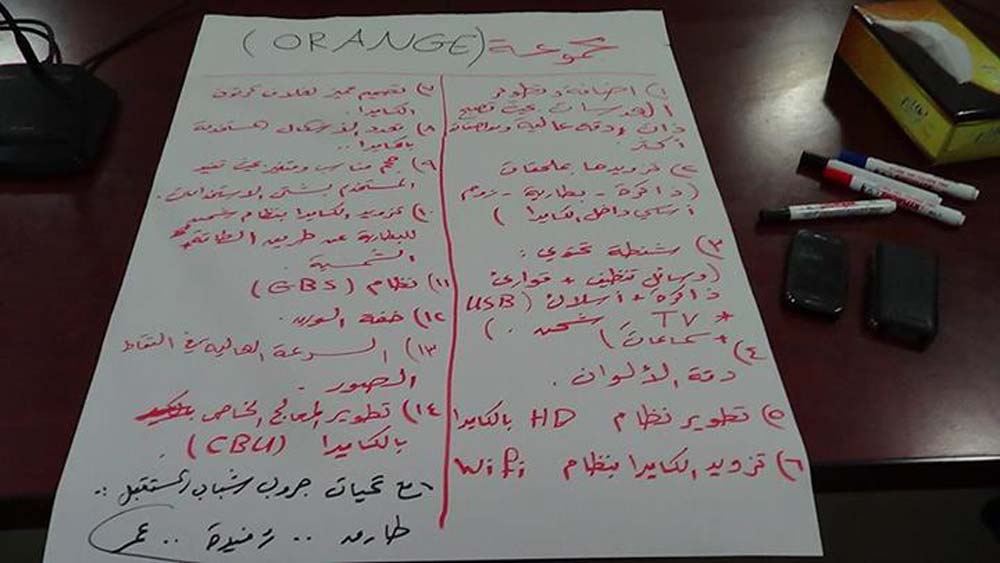 مجموعة (ORANGE)
١) اضافة وتطوير
العدسات بحيث تصبح
ذات دقة عالية ومواصفات
أكثر.
٢) تزويدها بملحقات
(ذاكرة - بطارية - زوم
أساسي داخل الكاميرا)
٣) شنطة تحتوي :
(وسائل تنظيف + قوارئ
ذاكرة + أسلاك (USB
* TV , شحن . )
+ سماعات)
٤) دقة الألوان .
٥) تطوير نظام HD بالكاميرا
٦) تزويد الكاميرا بنظام Wifi
٧) تصميم مميز لغلاف كرتون
الكاميرا.
٨) تعدد الأشكال
بالكاميرا ..
٩) حجم مناسب ومتغير بحيث تفيد
المستخدم بشتى الاستخدامات .
١٠) تزويد الكاميرا بنظام
للبطارية عن طريق الطاقة
الشمسية .
١١) نظام (GBS)
١٢) خفة الوزن .
١٣) السرعة العالية في التقاط
الصور .
١٤) تطوير المعالج الخاص
بالكاميرا (CBU) .
مع تحيات جروب شباب المستقبل ..
طارق .. رفيدة .. عمر